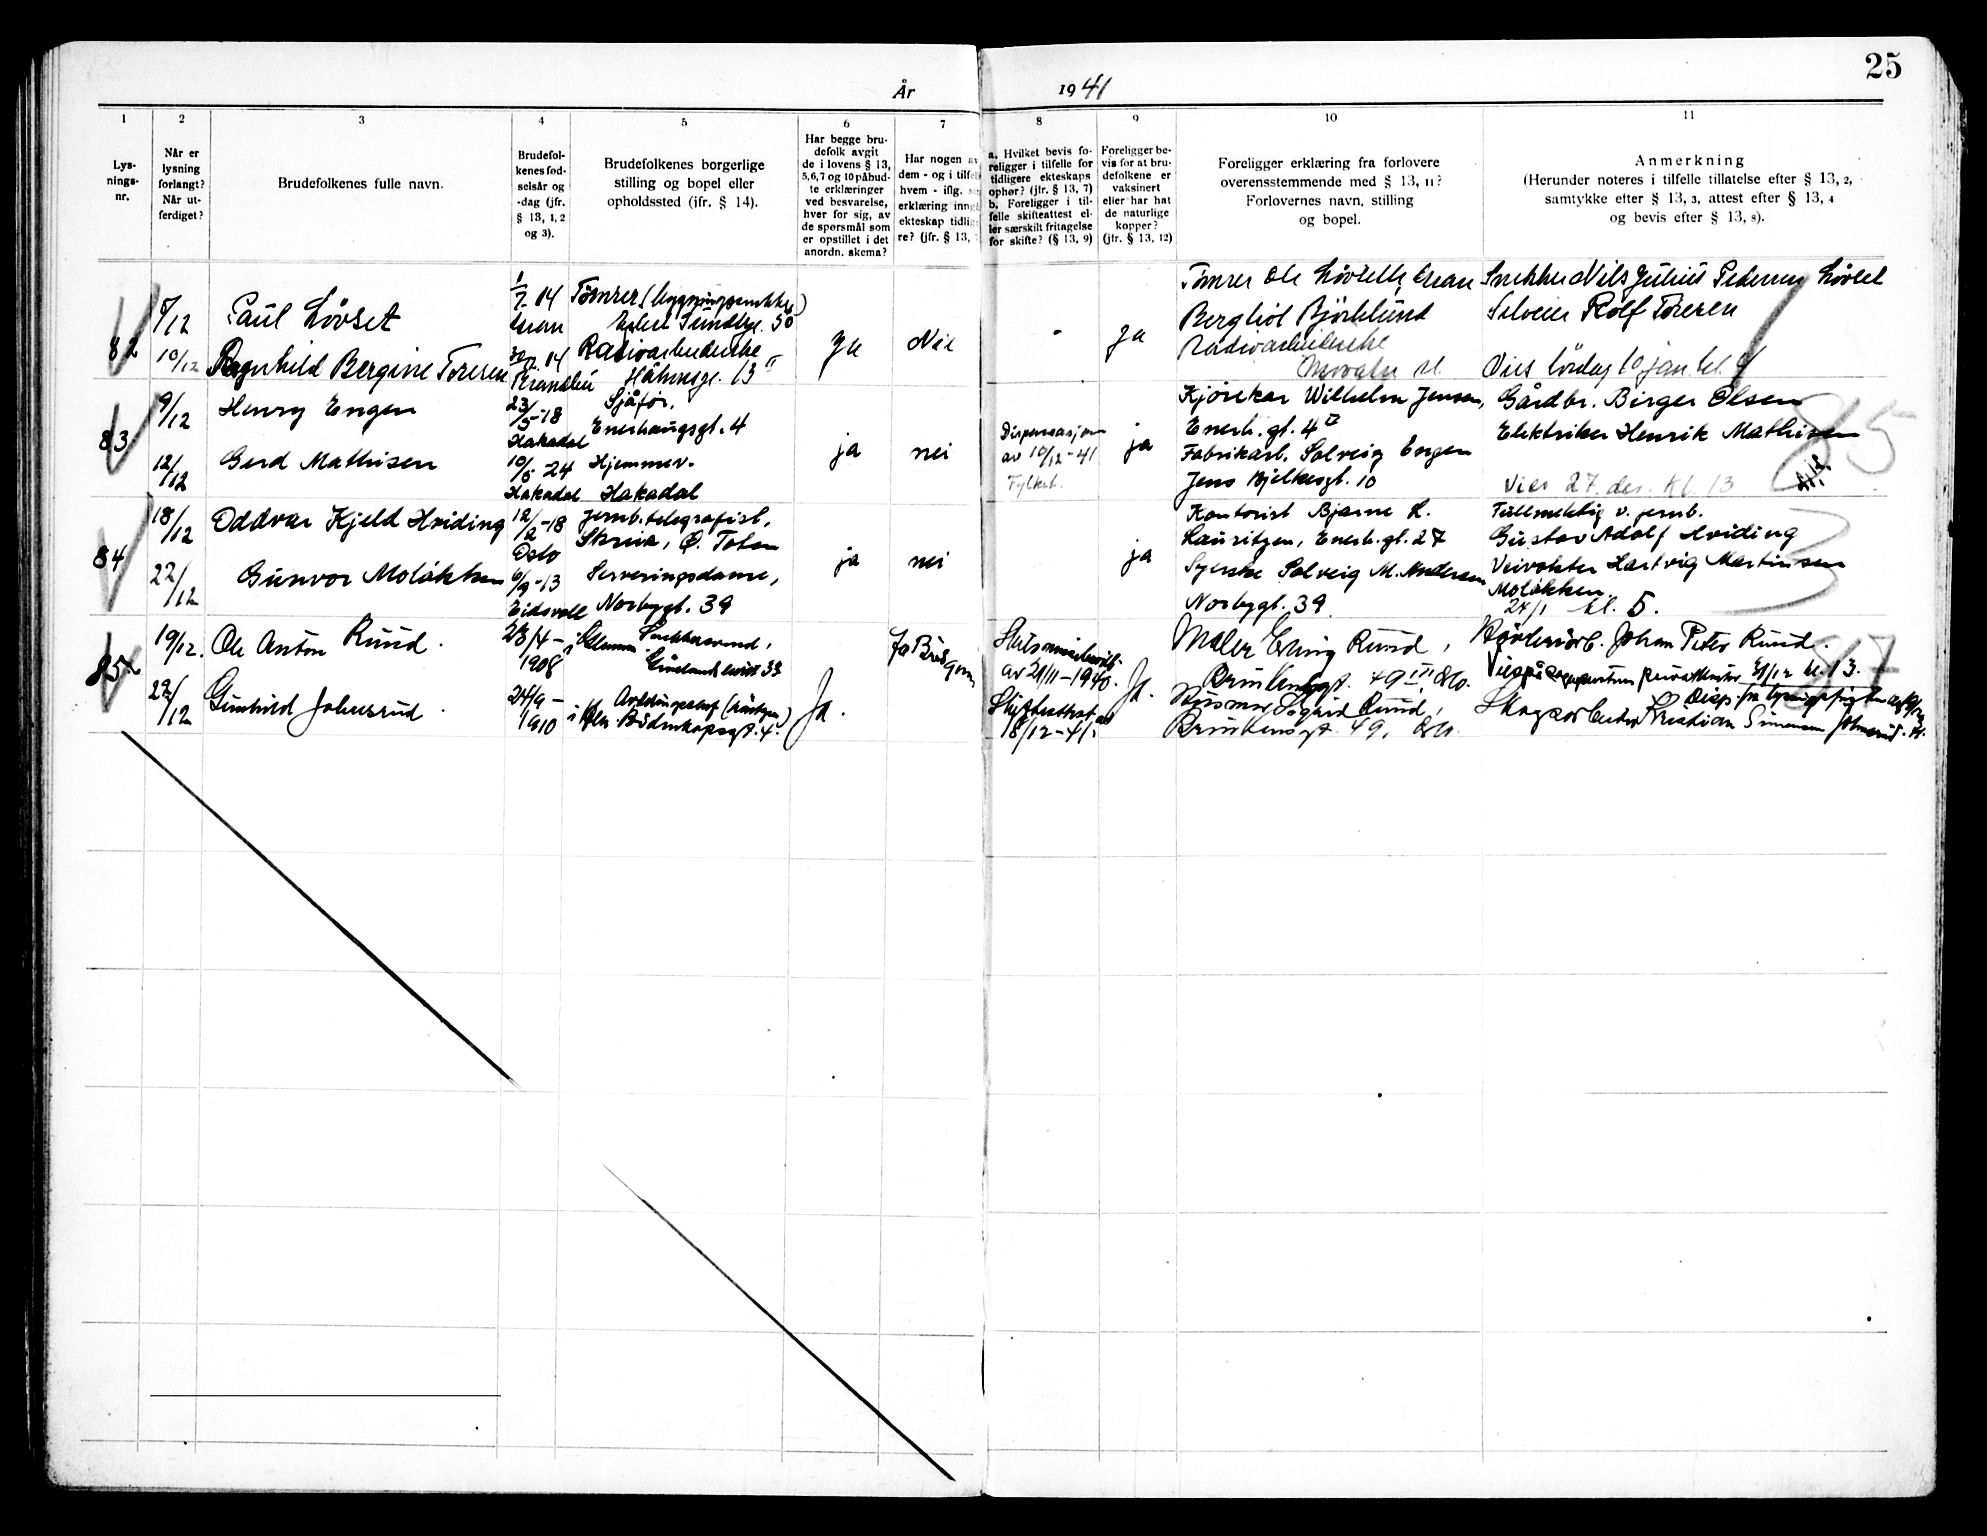 25
År 1941
1
Lys-
nings-
nr.
2
Når er
lysning
forlangt?
Når ut-
ferdiget?
3
Brudefolkenes fulle navn.
4
Brudefol-
kenes fød-
selsår og
-dag (jfr.
§ 13, 1, 2
og 3).
5
Brudefolkenes borgerlige
stilling og bopel eller
opholdssted (jfr. § 14).
6
Har begge bru-
defolk avgit
de i lovens § 13,
5, 6, 7 og 10 påbud-
te erklæringer
ved besvarelse,
hver for sig, av
de spørsmål som
er opstillet i det
anordn. skema?
7
Har nogen av
dem - og i tilfel
hvem - iflg.
erklæring inng
ekteskap tidlig
re? (jfr. § 13,
8
a. Hvilket bevis fo-
religger i tilfelle for
tidligere ekteskaps
ophør? (jfr. § 13, 7)
b. Foreligger i til-
felle skifteattest el-
ler særskilt fritagelse
for skifte? (§ 13, 9)
9
Foreligger be-
vis for at bru-
defolkene er
vaksinert
eller har hat
de naturlige
kopper?
(jfr. § 13, 12)
10
Foreligger erklæring fra forlovere
overensstemmende med § 13, 11?
Forlovernes navn, stilling
og bopel.
11
Anmerkning
(Herunder noteres i tilfelle tillatelse efter § 13, 2,
samtykke efter § 13, 3, attest efter § 13, 4
og bevis efter § 13, 8).
82
8/12
10/12
Paul Lövset
Ragnhild Bergine Toresen
1/7-14
30/12 14
Tømrer (bygningssnekker)
Eilert Sundtsgt. 50
Radioarbeiderske
13 II
ja
Nei
-
ja
Tømrer Ole
Bergliot Björklund
Radioarbeiderske
Snekker Nils Julius Pedersen Lövset
Rolf Toresen
Vies lördag 10 jan kl.
83
9/12
12/12
Henry Engen
Gerd Mathisen
23/5-18
Hakadal
10/5-24
Hakadal
Sjåfør,
Enerhaugsgt. 4
Hjemmev.
Hakadal
ja
nei
Dispensasjon
av 10/12-41
Fylkesl.
ja
Kjørekar Wilhelm Jensen,
Enerh. gt. 4 II
Fabrikarb. Solveig Engen
Jens Bjelkesgt. 10
Gårdbr. Birger Olsen
Elektriker Henrik Mathisen
Vies 27. des. kl 13
84
18/12
22/12
Oddvar Kjeld Hviding
Gunvor Moløkken
12/2-18
Oslo
6/9-13
Eidsvoll
Jernb.telegrafist,
Skreia, Ø. Toten
Serveringsdame,
Norbygt. 39
ja
nei
ja
Kontorist Bjarne R.
Lauritzen, Enerh. gt. 27
Syerske Solveig M. Andersen
Norbygt. 39
Fullmektig v. jernb.
Gustav Adolf Hviding
Veivokter Hartvig Martinsen
Moløkken.
24/1 kl. 5.
85
19/12.
22/12
Ole Anton Ruud.
Gunhild Johnsrud.
23/4-
1908
24/9-
1910
Snekkersvend,
Grønlandsleiret 33
Avdelingsbest (röntgen)
Ja.
Ja Brudgom
av 21/11-1940.
Skifteattest av
18/12-41.
Ja.
Maler Erling Ruud,
49 III, Oslo.
Husmor Sigrid Ruud,
49, Oslo.
Johan Peter Ruud.
kl. 13.
Skogsarbeider Kristian Simensen Johnsrud.